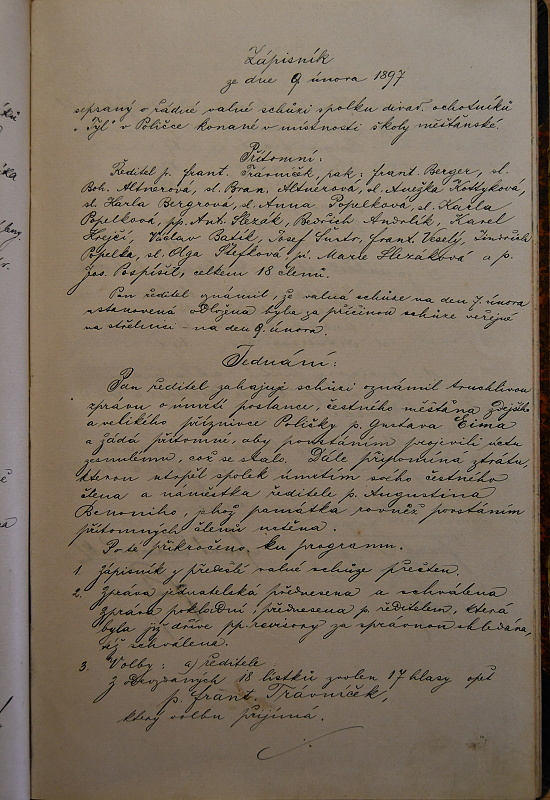 Zápisník
ze dne 9 února 1897
sepsaný o řádné valné schůzi spolku divad. ochotníků
"Tyl" v Poličce konané v místnosti školy měšťanské.
Přítomní:
Ředitel p. Frant. Trávníček, pak: Frant. Berger, sl.
Boh. Altnerova, sl. Bran. Altnerova, sl. Anejka
sl. Karla Bergrova, sl. Anna Popelkova, sl. Karla
Popelkova, pp. Ant. Slezák, Bedřich Andrlík, Karel
Krejčí, Václav Batík, Josef Franz. Veselý, Jindřich
Popelka, sl. Olga Štefkova, pí. Marie Slezáková a p.
Jos. Pospíšil, celkem 18 členů.
Pan ředitel oznámil, že valná schůze na den 7. února
ustanovená odložena byla za příčinou schůze veřejné
na střelnici na den 9. února.
Jednání:
Pan ředitel zahajuje schůzi oznámil truchlivou
zprávu o úmrtí poslance, čestného měšťana zdejšího
a velikého příznivce Poličky p. Gustava Eima
a žádá přítomné, aby povstáním projevili úctu
zesnulému, což se stalo. Dále připomíná ztrátu,
kterou utrpěl spolek úmrtím svého čestného
člena a náměstka ředitele p. Augustina
Benoniho, jehož památka rovněž povstáním
přítomných členů uctěna.
Poté přikročeno ku programu.
1. Zápisník z předešlé valné schůze přečten.
2. Zpráva jednatelská přednesena a schválena
zpráva pokladní přednesena p. ředitelem, která
byla již dříve pp. revisory za správnou shledána,
též schválena.
3. Volby: a) ředitele
Z odevzdaných 18 lístků zvolen 17 hlasy opět
p. Frant. Trávníček,
který volbu přijímá.